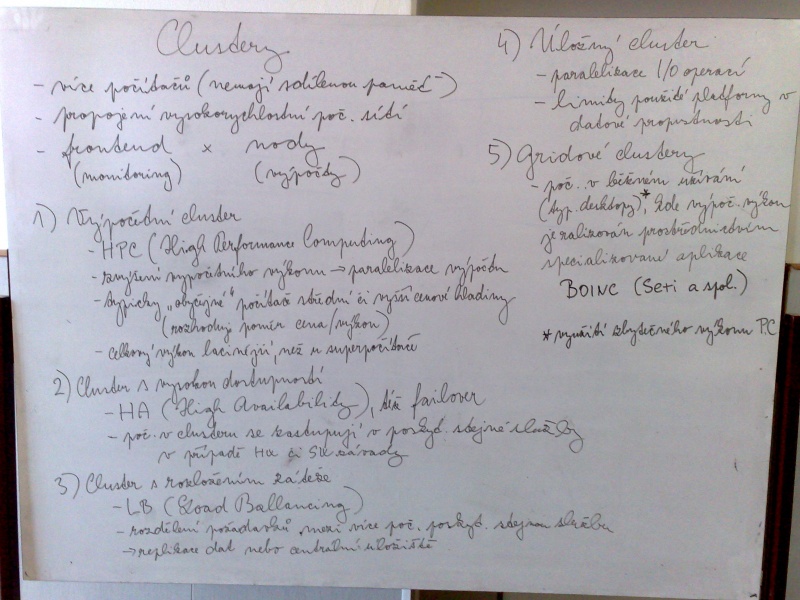 Clustery
- více počítačů (nemají sdílenou paměť)
- propojení vysokorychlostní poč. sítí
- frontend × nody
(monitoring) (výpočty)
1) Výpočetní cluster
- HPC (High Performance Computing)
- zvýšení výpočetního výkonu → paralelizace výpočtu
- typicky „obyčejné“ počítače střední či vyšší cenové hladiny
(rozhoduje poměr cena/výkon)
- celkový výkon lacinější, než u superpočítače
2) Cluster s vysokou dostupností
- HA (High Availability), též failover
- poč. v clusteru se zastupují v poskyt. stejné služby
v případě HW či SW závady
3) Cluster s rozložením zátěže
- LB (Load Ballancing)
- rozdělení požadavků mezi více poč. poskyt. stejnou službu
→ replikace dat nebo centrální úložiště
4) Úložný cluster
- paralelizace I/O operací
- limity použité platformy v
datové propustnosti
5) Gridové clustery
- poč. v běžném užívání
(typ. desktopy)*, kde výpoč. výkon
je realizován prostřednictvím
specializované aplikace
BOINC (Seti a spol.)
* využití zbytečného výkonu PC